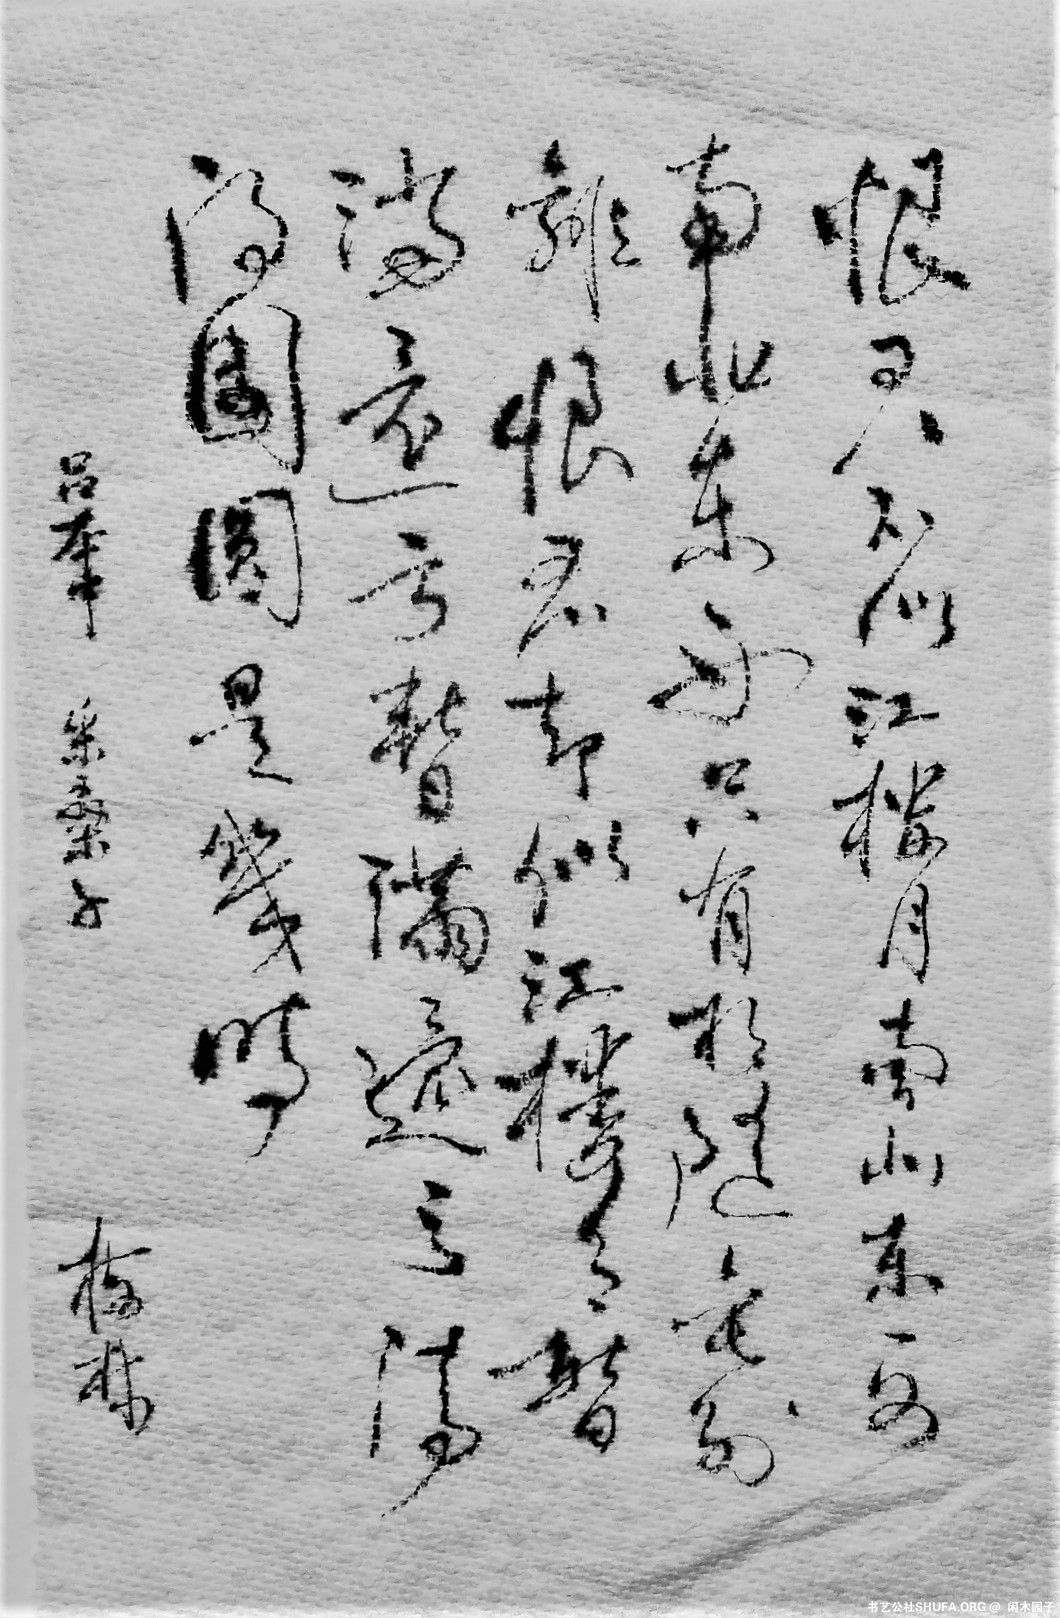 恨君不似江楼月南北东西
南北东西只有相随无别
離恨君却似江樓月暫
滿還亏暫滿還亏待
得團圓是幾時
吕本中 采桑子 梅林
书艺公社SHUFA.ORG @ 闲木园子